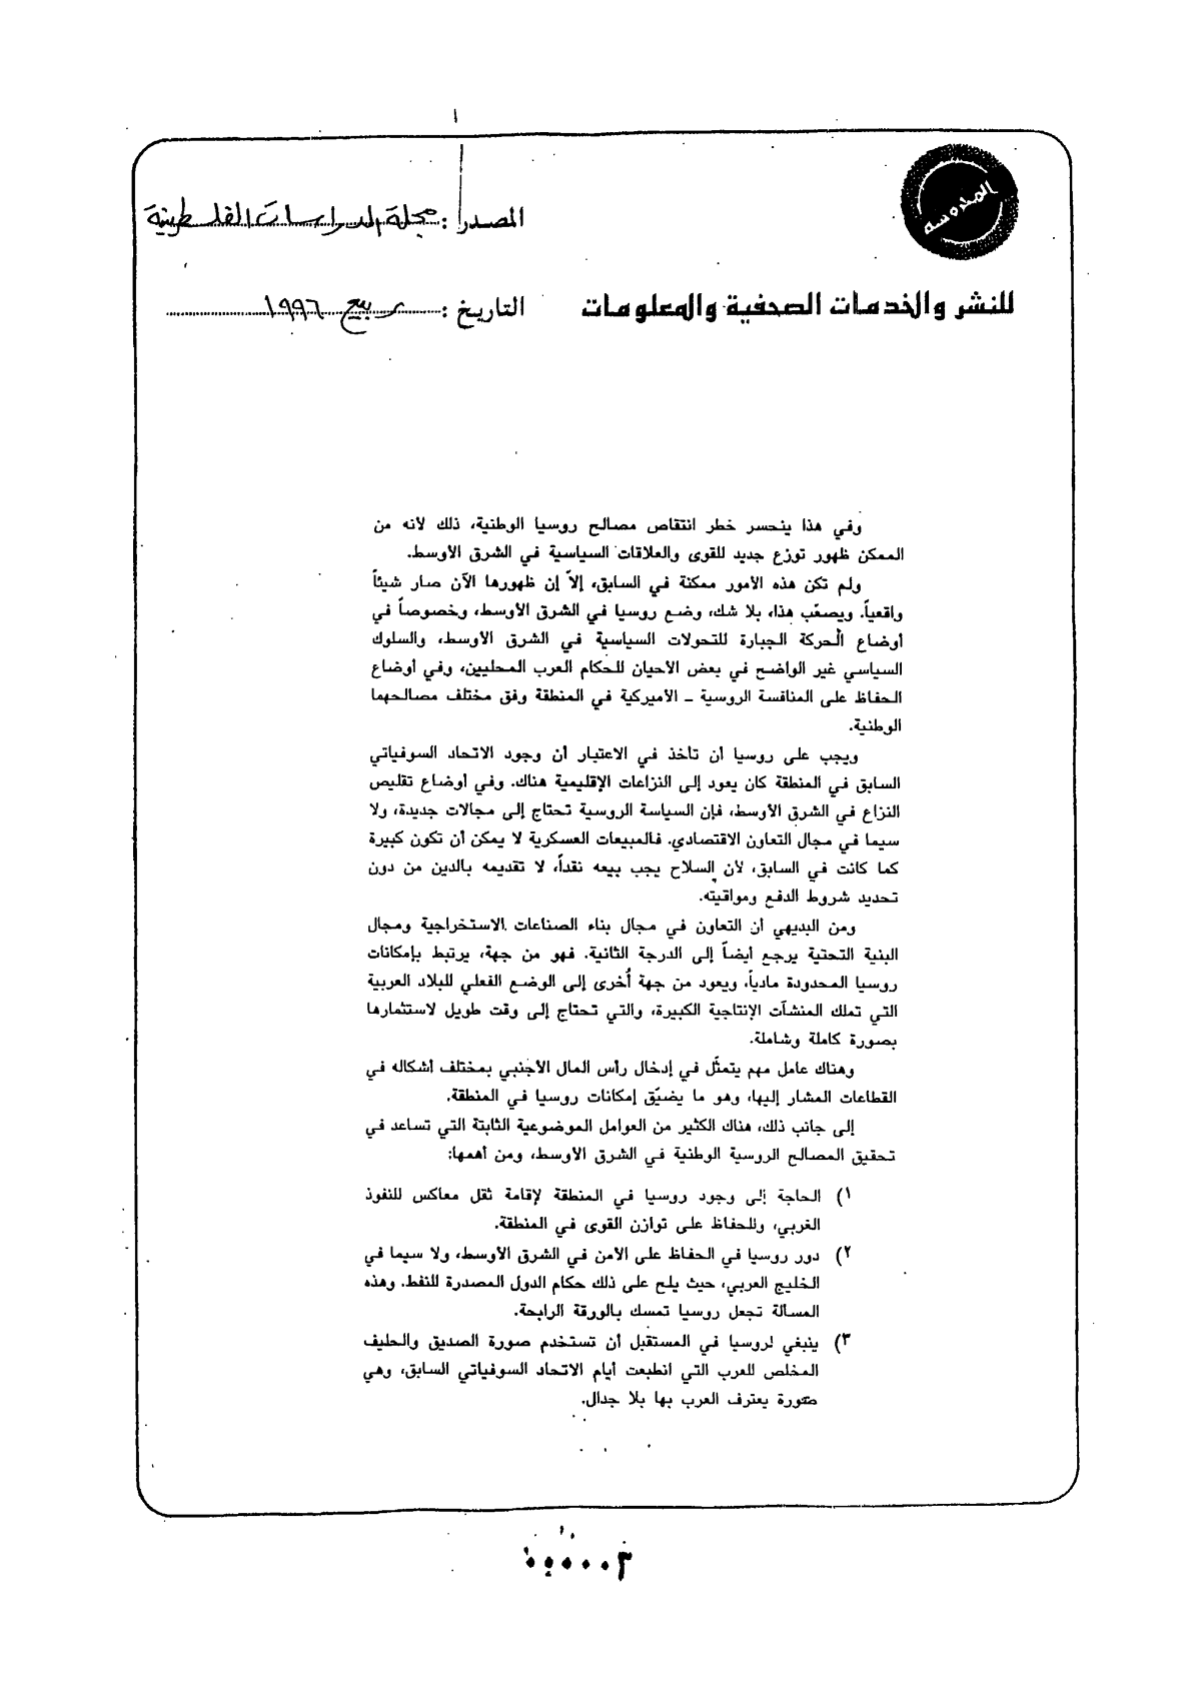 المحروسة
المصدر : مجلة الدراسات الفلسطينية
للنشر والخدمات الصحفية والمعلومات
التاريخ : ربيع ١٩٩٦
وفي هذا ينحسر خطر انتقاص مصالح روسيا الوطنية، ذلك لأنه من
الممكن ظهور توزع جديد للقوى والعلاقات السياسية في الشرق الأوسط.
ولم تكن هذه الأمور ممكنة في السابق، إلاّ إن ظهورها الآن صار شيئاً
واقعياً. ويصعّب هذا، بلا شك، وضع روسيا في الشرق الأوسط، وخصوصاً في
أوضاع الحركة الجبارة للتحولات السياسية في الشرق الأوسط، والسلوك
السياسي غير الواضح في بعض الأحيان للحكام العرب المحليين، وفي أوضاع
الحفاظ على المنافسة الروسية ـ الأميركية في المنطقة وفق مختلف مصالحهما
الوطنية.
ويجب على روسيا أن تأخذ في الاعتبار أن وجود الاتحاد السوفياتي
السابق في المنطقة كان يعود إلى النزاعات الإقليمية هناك. وفي أوضاع تقليص
النزاع في الشرق الأوسط، فإن السياسة الروسية تحتاج إلى مجالات جديدة، ولا
سيما في مجال التعاون الاقتصادي. فالمبيعات العسكرية لا يمكن أن تكون كبيرة
كما كانت في السابق، لأن السلاح يجب بيعه نقداً، لا تقديمه بالدين من دون
تحديد شروط الدفع ومواقيته.
ومن البديهي أن التعاون في مجال بناء الصناعات الاستخراجية ومجال
البنية التحتية يرجع أيضاً إلى الدرجة الثانية. فهو من جهة، يرتبط بإمكانات
روسيا المحدودة مادياً، ويعود من جهة أُخرى إلى الوضع الفعلي للبلاد العربية
التي تملك المنشآت الإنتاجية الكبيرة، والتي تحتاج إلى وقت طويل لاستثمارها
بصورة كاملة وشاملة.
وهناك عامل مهم يتمثّل في إدخال رأس المال الأجنبي بمختلف أشكاله في
القطاعات المشار إليها، وهو ما يضيّق إمكانات روسيا في المنطقة.
إلى جانب ذلك، هناك الكثير من العوامل الموضوعية الثابتة التي تساعد في
تحقيق المصالح الروسية الوطنية في الشرق الأوسط، ومن أهمها:
١) الحاجة إلى وجود روسيا في المنطقة لإقامة ثقل معاكس للنفوذ
الغربي، وللحفاظ على توازن القوى في المنطقة.
٢) دور روسيا في الحفاظ على الأمن في الشرق الأوسط، ولا سيما في
الخليج العربي، حيث يلح على ذلك حكام الدول المصدرة للنفط. وهذه
المسألة تجعل روسيا تمسك بالورقة الرابحة.
٣) ينبغي لروسيا في المستقبل أن تستخدم صورة الصديق والحليف
المخلص للعرب التي انطبعت أيام الاتحاد السوفياتي السابق، وهي
صورة يعترف العرب بها بلا جدال.